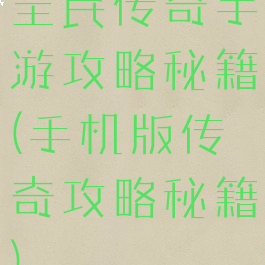 全民传奇手
游攻略秘籍
(手机版传
奇攻略秘籍
)